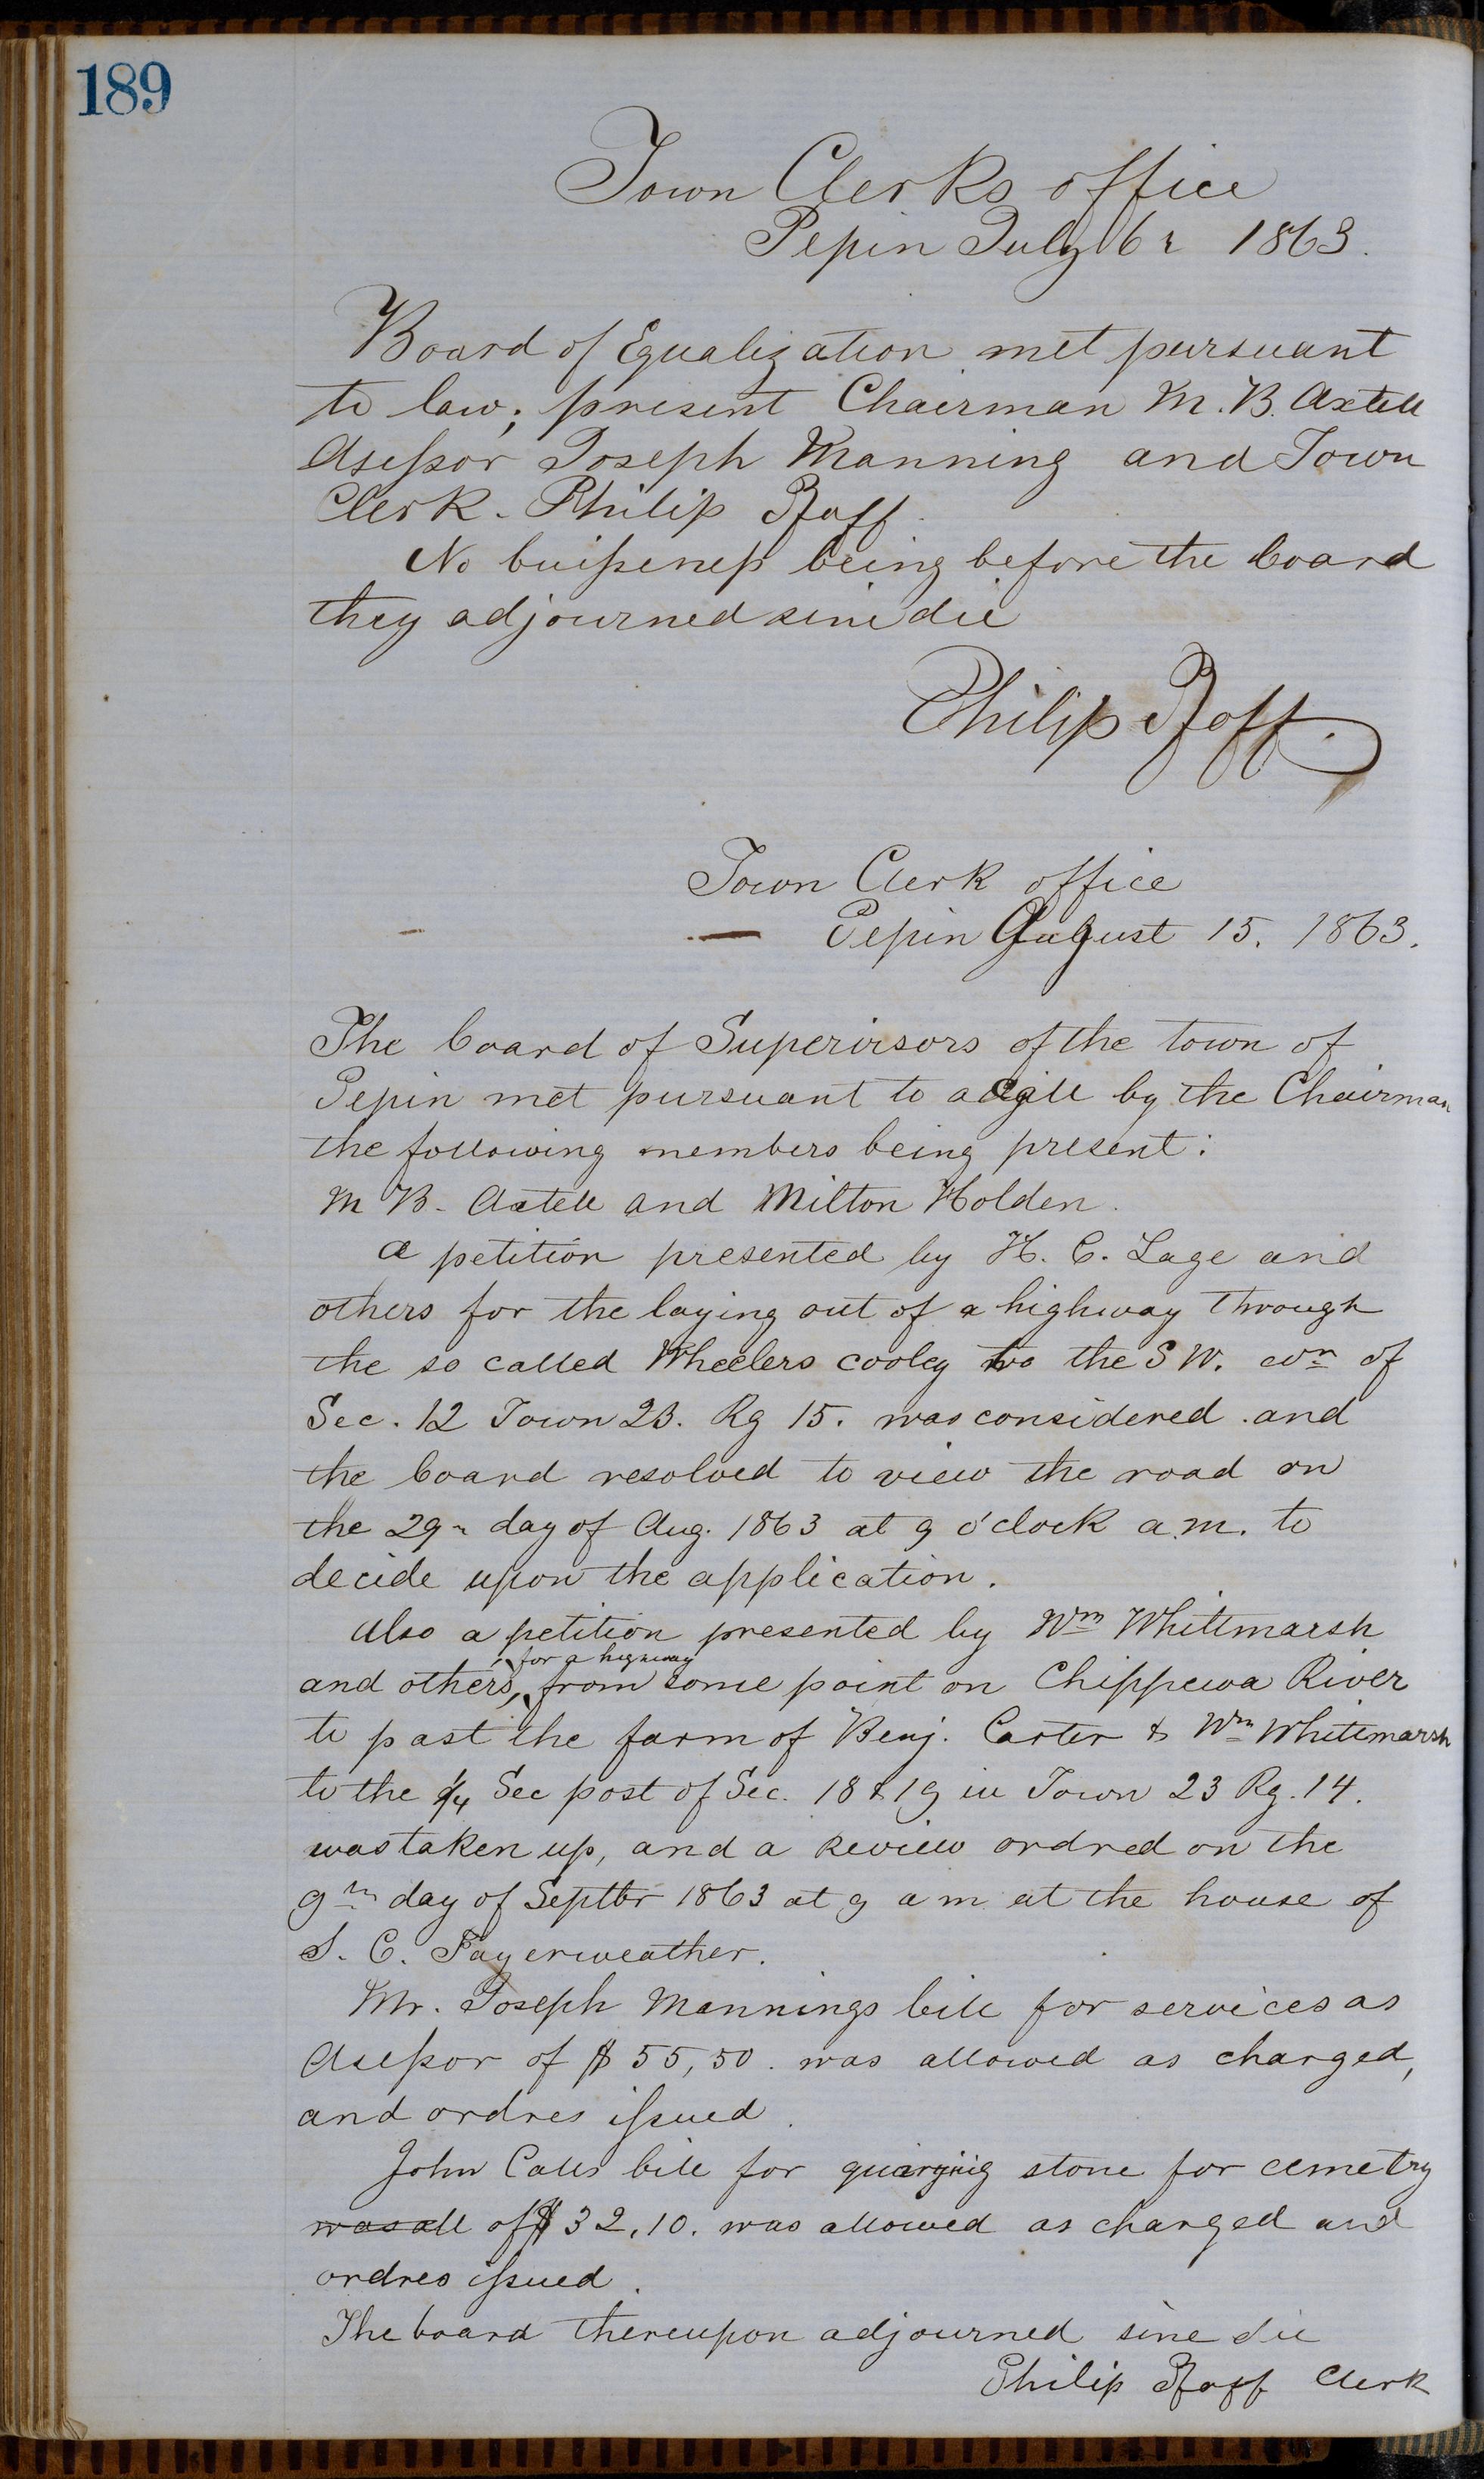 189
Town Clerks office
Pepin July 6th 1863.
Board of Equalization met pursuant
to law; present Chairman M. B. Axtell
Asessor Joseph Manning and Town
Clerk. Philip Pfaff.
No buissness being before the board
they adjourned sine die
Philip Pfaff.
Town Clerk office
Pepin August 15. 1863.
The board of Supervisors of the town of
Pepin met pursuant to a call by the Chairman
the following members being present:
M B. Axtell and Milton Holden.
A petition presented by H. C. Lage and
others for the laying out of a highway through
the so called Wheelers cooley to the S W. corn of
Sec. 12 Town 23. Rg 15. was considered and
the board resolved to view the road on
the 29th day of Aug. 1863 at 9 o'clock a.m. to
decide upon the application.
Also a petition presented by Wm Whittmarsh
for a highway
and others, from some point on Chippewa River
to past the farm of Benj. Carter & Wm Whitemarsh
to the 1/4 Sec post of Sec. 18 & 19 in Town 23 Rg. 14.
was taken up, and a Review ordred on the
9th day of Septbr 1863 at 9 a m at the house of
S. C. Fayerweather.
Mr. Joseph Mannings bill for services as
Asessor of $ 55,50. was allowed as charged,
and ordres issued.
John Calls bill for stone for cemetry
was all of $ 32.10. was allowed as charged and
ordres issued.
The board thereupon adjourned sine die
Philip Pfaff Clerk